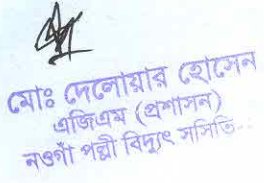 মোঃ দেলোয়ার হোসেন
এজিএম (প্রশাসন)
নওগাঁ পল্লী বিদ্যুৎ সমিতি